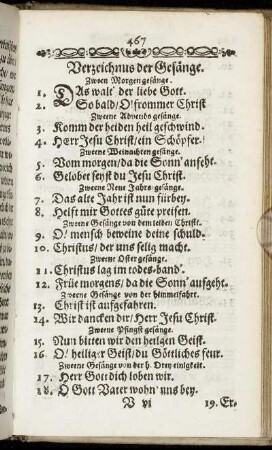 467
Verzeichnus der Gesänge.
Zween Morgengesänge.
1. DAs walt' der liebe Gott.
2. So bald / O! frommer Christ
Zweene Advends gesänge.
3. Komm der heiden heil geschwind.
4. Herr Jesu Christ / ein Schöpfer.
Zweene Weinachten gesänge.
5. Vom morgen / da die Sonn' anseht.
6. Gelobet seyst du Jesu Christ.
Zweene Neue Jahrs-gesänge.
7. Das alte Jahr ist nun fürbey.
8. Helft mir Gottes güte preisen.
Zweene Gesänge von dem leiden Christi.
9. O! mensch beweine deine schuld.
10. Christus / der uns selig macht.
Zweene Oster gesänge.
11. Christus lag im todes-band'.
12. Früe morgens / da die Sonn' aufgeht.
Zweene Gesänge von der himmelfahrt.
13. Christ ist aufgefahren.
14. Wir dancken dir / Herr Jesu Christ.
Zweene Pfingst gesänge.
15. Nun bitten wir den heilgen Geist.
16. O! heiliger Geist / du Göttliches feur.
Zweene Gesänge von der h. Drey einigkeit.
17. Herr Gott dich loben wir.
18. O Gott Vater wohn' uns bey.
V vj 19. Er-